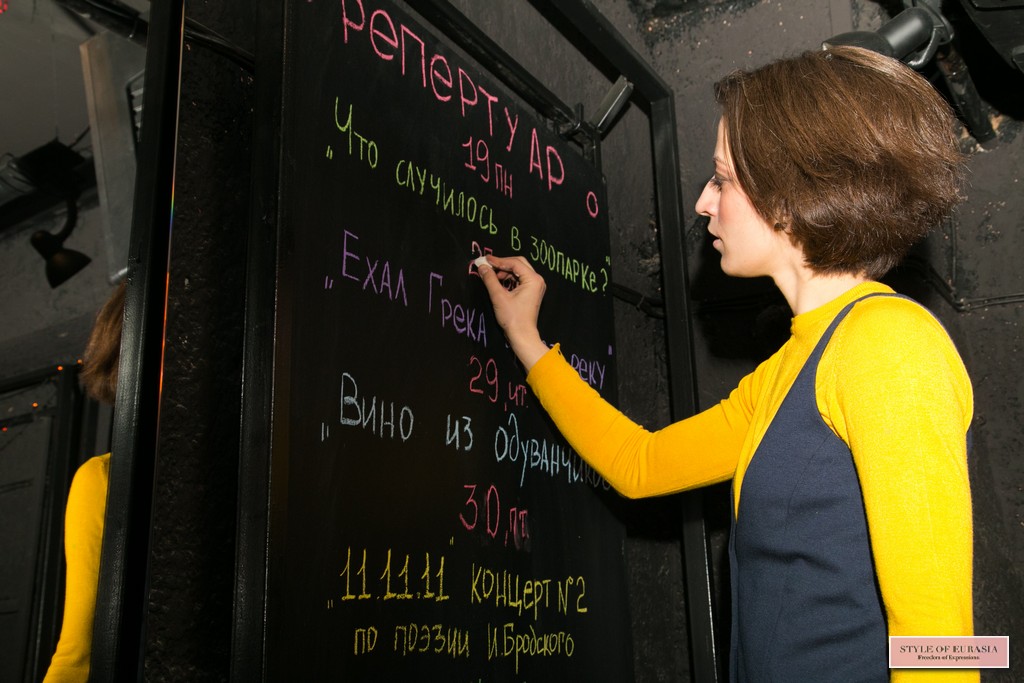 репертуар
19 пн
"Что случилось в зоопарке?"
"Ехал Грека реку"
29, чт.
"Вино из одуванчиков
30, пт.
"11.11.11" концерт №2
по поэзии И.Бродского
STYLE OF EURASIA
Freedom of Expressions